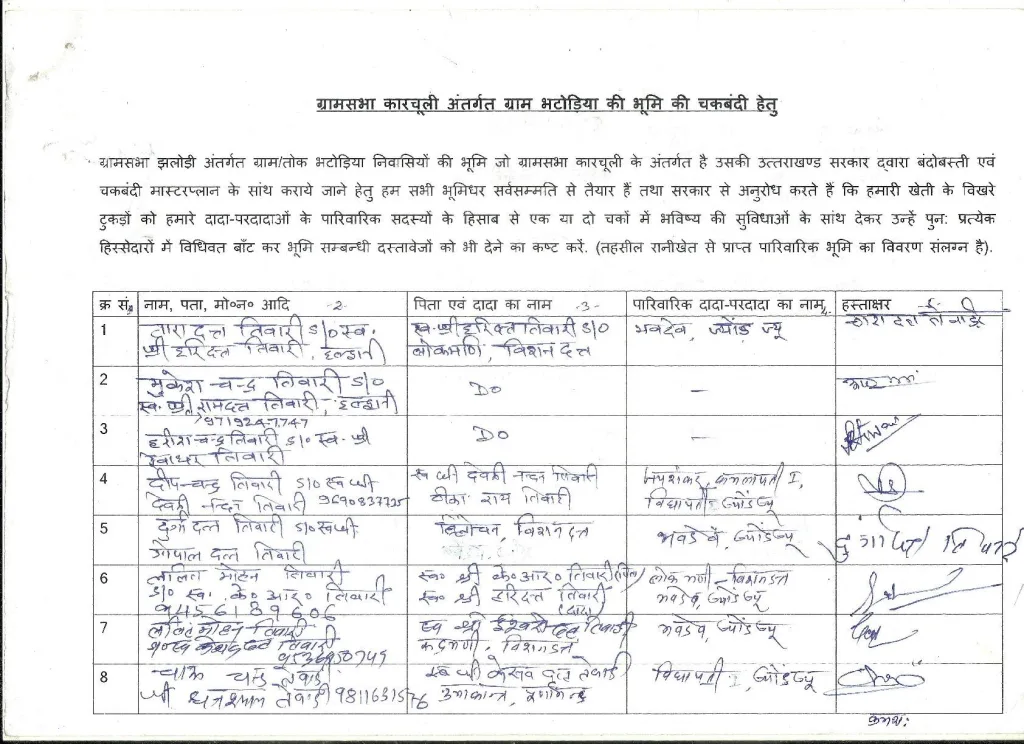 ग्रामसभा कारचूली अंतर्गत ग्राम भटोड़िया की भूमि की चकबंदी हेतु
ग्रामसभा झलोडी अंतर्गत ग्राम/तोक भटोड़िया निवासियों की भूमि जो ग्रामसभा कारचूली के अंतर्गत है उसकी उत्तराखण्ड सरकार द्वारा बंदोबस्ती एवं
चकबंदी मास्टरप्लान के सांथ कराये जाने हेतु हम सभी भूमिधर सर्वसम्मति से तैयार हैं तथा सरकार से अनुरोध करते हैं कि हमारी खेती के विखरे
टुकड़ों को हमारे दादा-परदादाओं के पारिवारिक सदस्यों के हिसाब से एक या दो चकों में भविष्य की सुविधाओं के सांथ देकर उन्हें पुन: प्रत्येक
हिस्सेदारों में विधिवत बाँट कर भूमि सम्बन्धी दस्तावेजों को भी देने का कष्ट करें. (तहसील रानीखेत से प्राप्त पारिवारिक भूमि का विवरण संलग्न है).
क्र सं. नाम, पता, मो०न० आदि -2- पिता एवं दादा का नाम -3- पारिवारिक दादा-परदादा का नाम हस्ताक्षर
1 तारा दत्त तिवारी S/० स्व. स्व. श्री हरिदत्त तिवारी S/० भवदेव, ज्योंड ज्यू
श्री हरिदत्त तिवारी, हल्द्वानी लोकमणि, विशन दत्त
2 मुकेश चन्द्र तिवारी S/० DO –
स्व. श्री रामदत्त तिवारी, हल्द्वानी
9719247747
3 हरीश चन्द्र तिवारी S/० स्व. श्री DO –
तिवारी
4 दीप चन्द्र तिवारी S/० स्व श्री स्व श्री देवकी नन्दन तिवारी कमलापती I,
देवकी नन्दन तिवारी 9690837725 टीका राम तिवारी विद्यापती ज्योंड ज्यू
5 दुर्गा दत्त तिवारी S/० स्व श्री त्रिलोचन, विशन दत्त भवदेव, ज्योंड ज्यू
गोपाल दत्त तिवारी
दुर्गा दत्त तिवारी
6 ललित मोहन तिवारी स्व० श्री के० आर० तिवारी (पिता) लोक मणी – विशनदत्त
S/० स्व. के० आर० तिवारी स्व० श्री हरिदत्त तिवारी भवदेव, ज्योंड ज्यू
9456189606 (दादा)
7 ललित मोहन तिवारी स्व श्री ईश्वरी दत्त तिवारी भवदेव, ज्योंड ज्यू
तिवारी विशनदत्त
9536950749
8 चन्द्र तेवाड़ी स्व श्री केशव दत्त तेवाड़ी विद्यापती I, ज्योंड ज्यू
श्री तेवाड़ी 9811631576 उमाकान्त,
क्रमश: